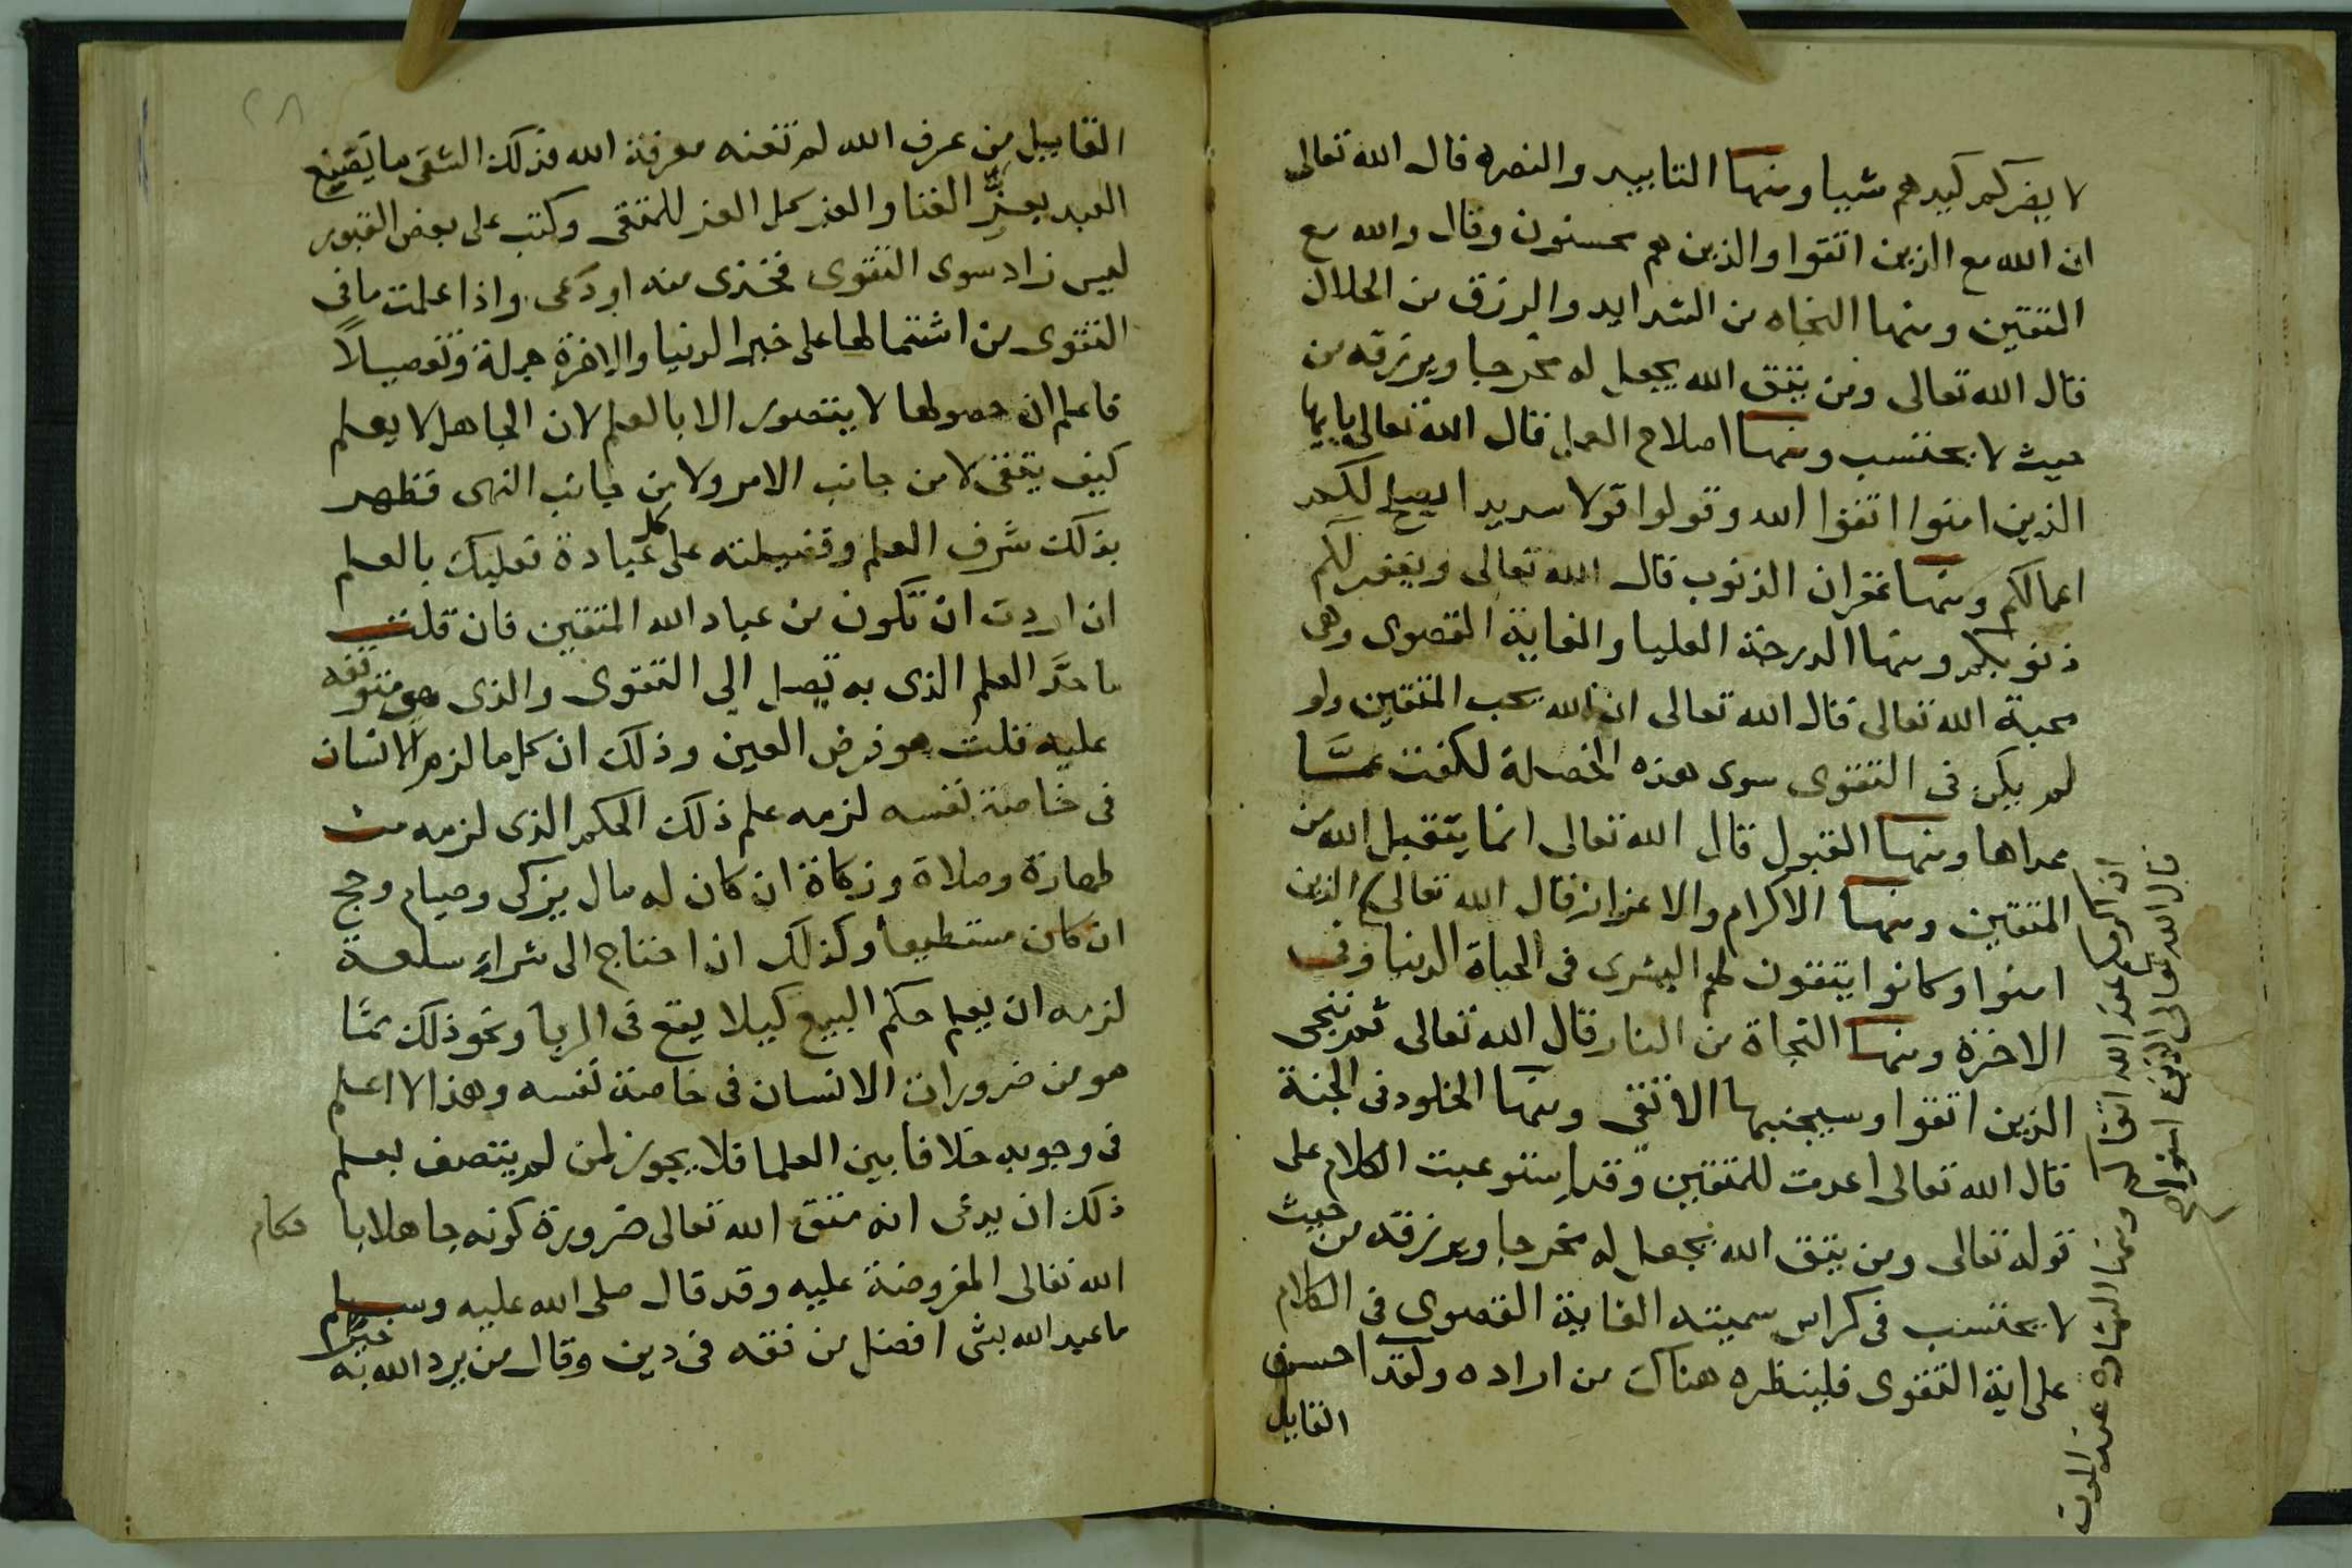 لا يضركم كيدهم شيا ومنها التاييد والنصره قال الله تعالى
ان الله مع الذين اتقوا والذين هم محسنون وقال والله مع
المتقين ومنها النجاه من الشدايد والرزق من الحلال
قال الله تعالى ومن يتق الله يجعل له مخرجا ويرزقه من
حيث لا يحتسب ومنها اصلاح العمل قال الله تعالى يايها
الذين امنوا اتقوا الله وقولوا قولا سديدا يصلح لكم
اعمالكم ومنها غفران الذنوب قال الله تعالى ويغفر لكم
ذنوبكم ومنها الدرجة العليا والغاية القصوى وهى
محبة الله تعالى قال الله تعالى ان الله يحب المتقين ولو
لم يكن فى التقوى سوى هذه الخصلة لكفت عمَّا
عداها ومنها القبول قال الله تعالى انما يتقبل الله من
المتقين ومنها الاكرام والاعزاز قال الله تعالى الذين
امنوا وكانوا يتقون لهم البشرى فى الحياة الدنيا وفى
الاخرة ومنها النجاة من النار قال الله تعالى ثم ننجى
الذين اتقوا وسيجنبها الاتقى ومنها الخلود فى الجنة
قال الله تعالى اعدت للمتقين وقد استوعبت الكلام على
قوله تعالى ومن يتق الله يجعل له مخرجا ويرزقه من حيث
لا يحتسب فى كراس سميته الغاية القصوى فى الكلام
على اية التقوى فلينظره هناك من اراده ولقد احسن
القايل
ان اكرمكم عند الله اتقاكم ومنها البشاره عند الموت
قال الله تعالى الذين امنوا صح
٢٨
القاييل من عرف الله لم تغنه معرفة الله فذلك الشقى ما يصنع
العبد بعزِّ الغنا والعز كل العز للمتقى وكتب على بعض القبور
ليس زاد سوى التقوى فخذى منه او دعى واذا علمت ما فى
التقوى من اشتمالها على خير الدنيا والاخرة جملة وتفصيلاً
فاعلم ان حصولها لا يتصور الا بالعلم لان الجاهل لا يعلم
كيف يتقى لا من جانب الامر ولا من جانب النهى فظهر
بذلك شرف العلم وفضيلته على كل عبادة فعليك بالعلم
ان اردت ان تكون من عباد الله المتقين فان قلت
ما حدَّ العلم الذى به تصل الى التقوى والذى هو متوقفه
عليه قلت هو فرض العين وذلك ان كل ما لزم الانسان
فى خاصة نفسه لزمه علم ذلك الحكم الذى لزمه من
طهارة وصلاة وزكاة ان كان له مال يزكى وصيام وحج
ان كان مستطيعا وكذلك اذا احتاج الى شراء سلعة
لزمه ان يعلم حكم البيع كيلا يقع فى الربا ونحو ذلك ممَّا
هو من ضرورات الانسان فى خاصة نفسه وهذا لا اعلم
فى وجوبه خلافا بين العلما فلا يجوز لمن لم يتصف بعلم
ذلك ان يدعى انه متق الله تعالى ضرورة كونه جاهلا باحكام
الله تعالى المفروضة عليه وقد قال صلى الله عليه وسلم
ما عبد الله بشى افضل من فقه فى دين وقال من يرد الله به خيرًا